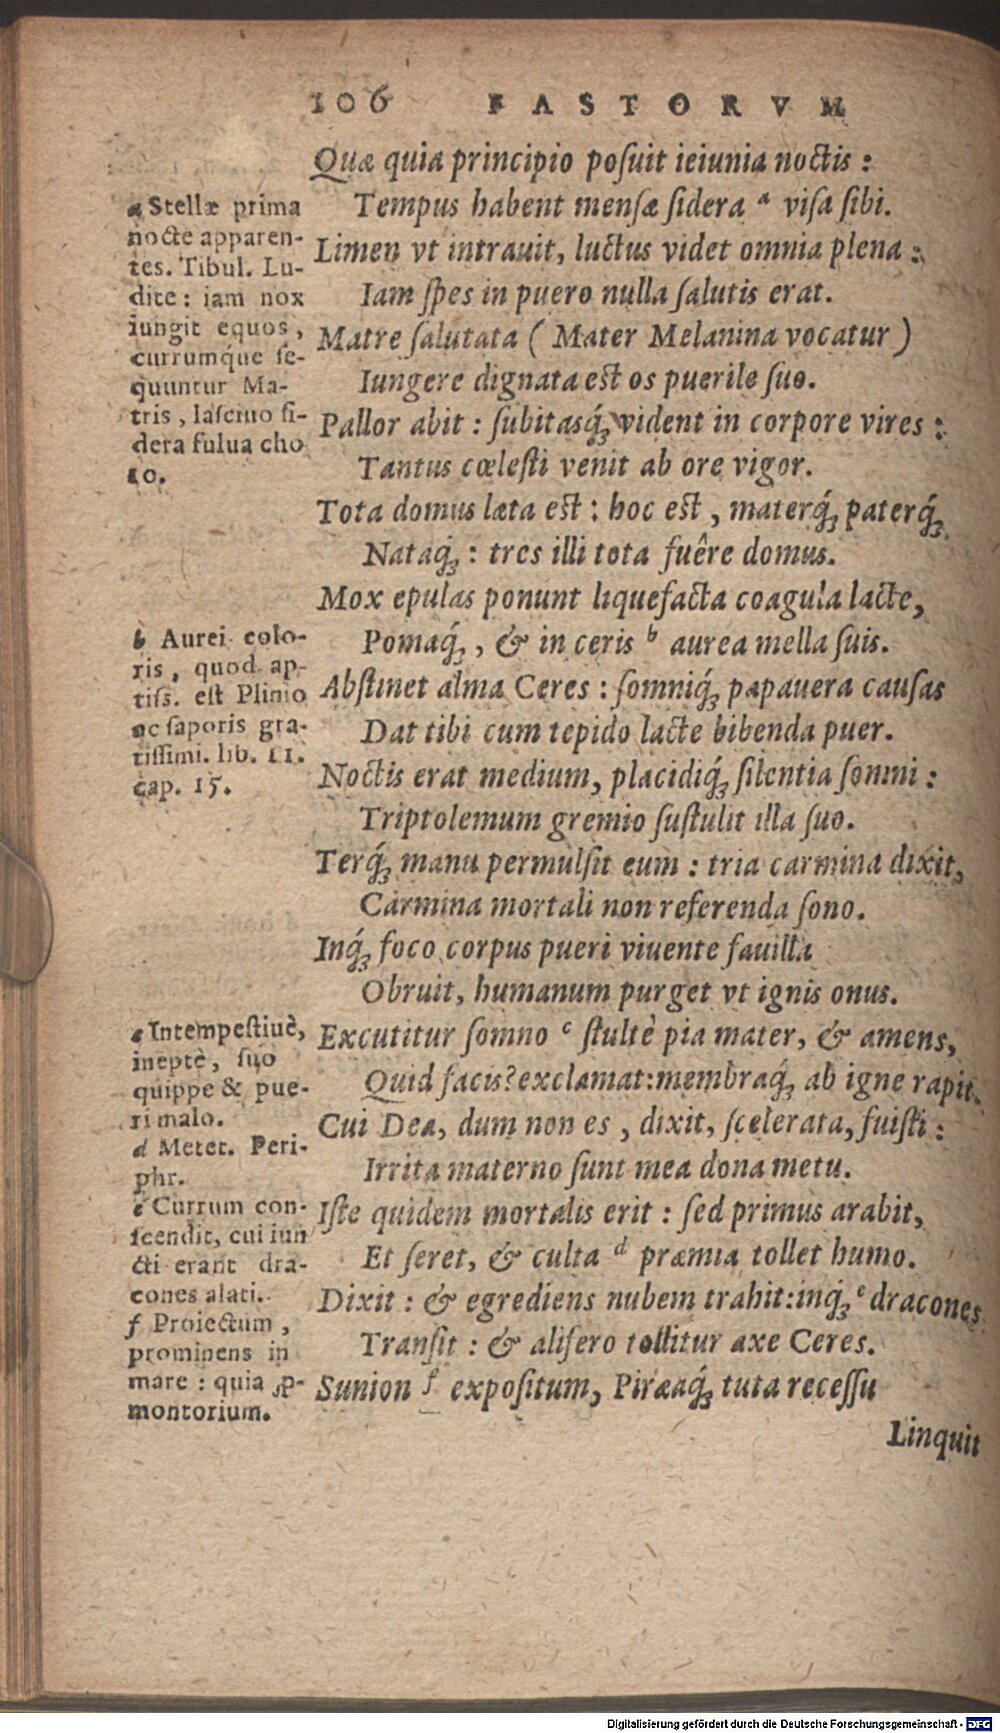 106 FASTORVM
Quæ quia principio poſuit ieiunia noctis :
Tempus habent menſæ ſidera ᵃ viſa ſibi.
Limen vt intrauit, luctus videt omnia plena :
Iam ſpes in puero nulla ſalutis erat.
Matre ſalutata ( Mater Melanina vocatur )
Iungere dignata est os puerile ſuo.
Pallor abit : ſubitasq́ꝫ vident in corpore vires :
Tantus cœleſti venit ab ore vigor.
Tota domus læta est : hoc est , materq́ꝫ paterq́ꝫ
Nataq́ꝫ : tres illi tota fuêre domus.
Mox epulas ponunt liquefacta coagula lacte,
Pomaq́ꝫ , & in ceris ᵇ aurea mella ſuis.
Abſtinet alma Ceres : ſomniq́ꝫ papauera cauſas
Dat tibi cum tepido lacte bibenda puer.
Noctis erat medium, placidiq́ꝫ ſilentia ſomni :
Triptolemum gremio ſuſtulit illa ſuo.
Terq́ꝫ manu permulſit eum : tria carmina dixit,
Carmina mortali non referenda ſono.
Inq́ꝫ foco corpus pueri viuente fauilla
Obruit, humanum purget vt ignis onus.
Excutitur ſomno ᶜ ſtultè pia mater, & amens,
Quid facis? exclamat: membraq́ꝫ ab igne rapit.
Cui Dea, dum non es , dixit, ſcelerata, fuiſti :
Irrita materno ſunt mea dona metu.
Iſte quidem mortalis erit : ſed primus arabit,
Et ſeret, & culta ᵈ præmia tollet humo.
Dixit : & egrediens nubem trahit: inq́ꝫ ᵉ dracones
Tranſit : & alifero tollitur axe Ceres.
Sunion ᶠ expoſitum, Piræaq́ꝫ tuta receſſu
Linquit
a Stellæ prima
nocte apparen-
tes. Tibul. Lu-
dite : iam nox
iungit equos ,
currumq́ue ſe-
quuntur Ma-
tris , laſciuo ſi-
dera fulua cho
ro.
b Aurei colo-
ris , quod ap-
tiſſ. est Plinio
ac ſaporis gra-
tiſſimi. lib. 11.
cap. 15.
c Intempeſtiuè,
ineptè , ſuo
quippe & pue-
ri malo.
d Metet. Peri-
phr.
e Currum con-
ſcendit, cui iun
cti erant dra-
cones alati.
f Proiectum ,
prominens in
mare : quia ꝓ-
montorium.
Digitalisierung gefördert durch die Deutsche Forschungsgemeinschaft - DFG